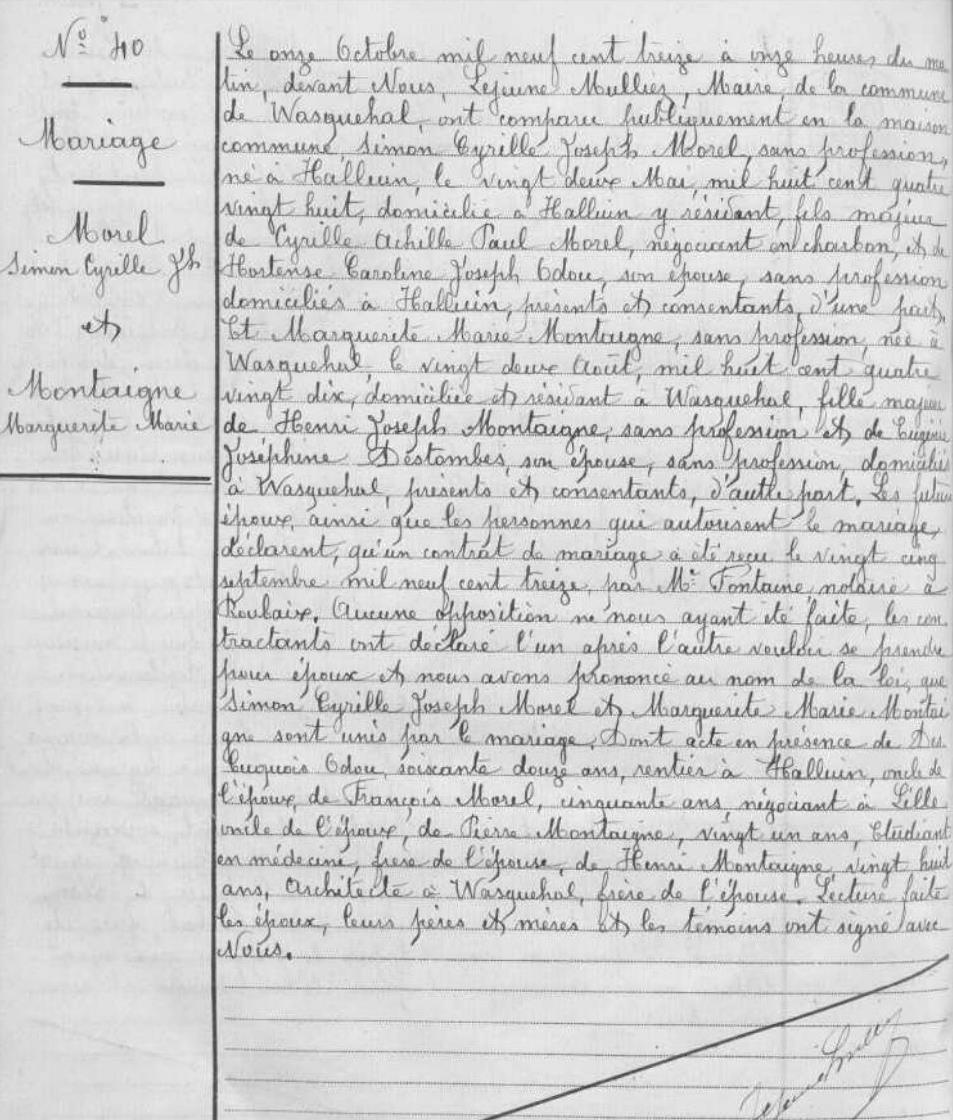 N° 40
Mariage
Morel
Simon Cyrille Jh
et
Montaigne
Marguerite Marie
Le onze Octobre mil neuf cent treize à onze heures du ma
tin, devant Nous, Lejeune Mulliez, Maire de la commune
de Wasquehal, ont comparu publiquement en la maison
commune, Simon Cyrille Joseph Morel, sans profession,
né à Halluin, le vingt deux Mai, mil huit cent quatre
vingt huit, domicilié à Halluin y résidant, fils majeur
de Cyrille Achille Paul Morel, négociant en charbon, et de
Hortense Caroline Joseph Odou, son épouse, sans profession
domiciliés à Halluin, présents et consentants, d'une part,
Et Marguerite Marie Montaigne, sans profession, née à
Wasquehal, le vingt deux Août, mil huit cent quatre
vingt dix, domiciliée et résidant à Wasquehal, fille majeure
de Henri Joseph Montaigne, sans profession et de Eugénie
Joséphine Destombes, son épouse, sans profession, domiciliés
à Wasquehal, présents et consentants, d'autre part. Les futurs
époux, ainsi que les personnes qui autorisent le mariage,
déclarent, qu'un contrat de mariage a été reçu le vingt cinq
septembre mil neuf cent treize, par Me Fontaine, notaire à
Roubaix. Aucune opposition ne nous ayant été faite, les con
tractants ont déclaré l'un après l'autre vouloir se prendre
pour époux et nous avons prononcé au nom de la loi, que
Simon Cyrille Joseph Morel et Marguerite Marie Montai
gne sont unis par le mariage. Dont acte en présence de
Odou, soixante douze ans, rentier à Halluin, oncle de
l'époux, de François Morel, cinquante ans, négociant à Lille
oncle de l'époux, de Pierre Montaigne, vingt un ans, Etudiant
en médecine, frère de l'épouse, de Henri Montaigne, vingt huit
ans, Architecte à Wasquehal, frère de l'épouse. Lecture faite
les époux, leurs pères et mères et les témoins ont signé avec
Nous.